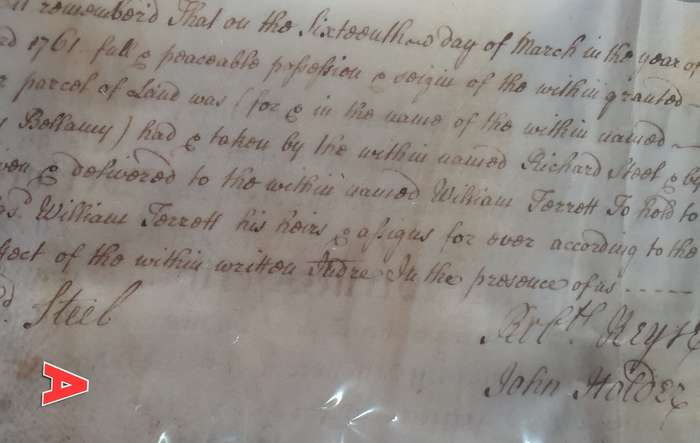 remember'd That on the Sixteenth day of March in the year of
1761 full & peaceable possession & seizin of the within granted
parcel of Land was (for & in the name of the within named
Bellamy) had & taken by the within named Richard Steel & by
& delivered to the within named William Terrett To hold to
William Terrett his heirs & assigns for ever according to the
of the within written Indre In the presence of us
Steel
John Holder
A